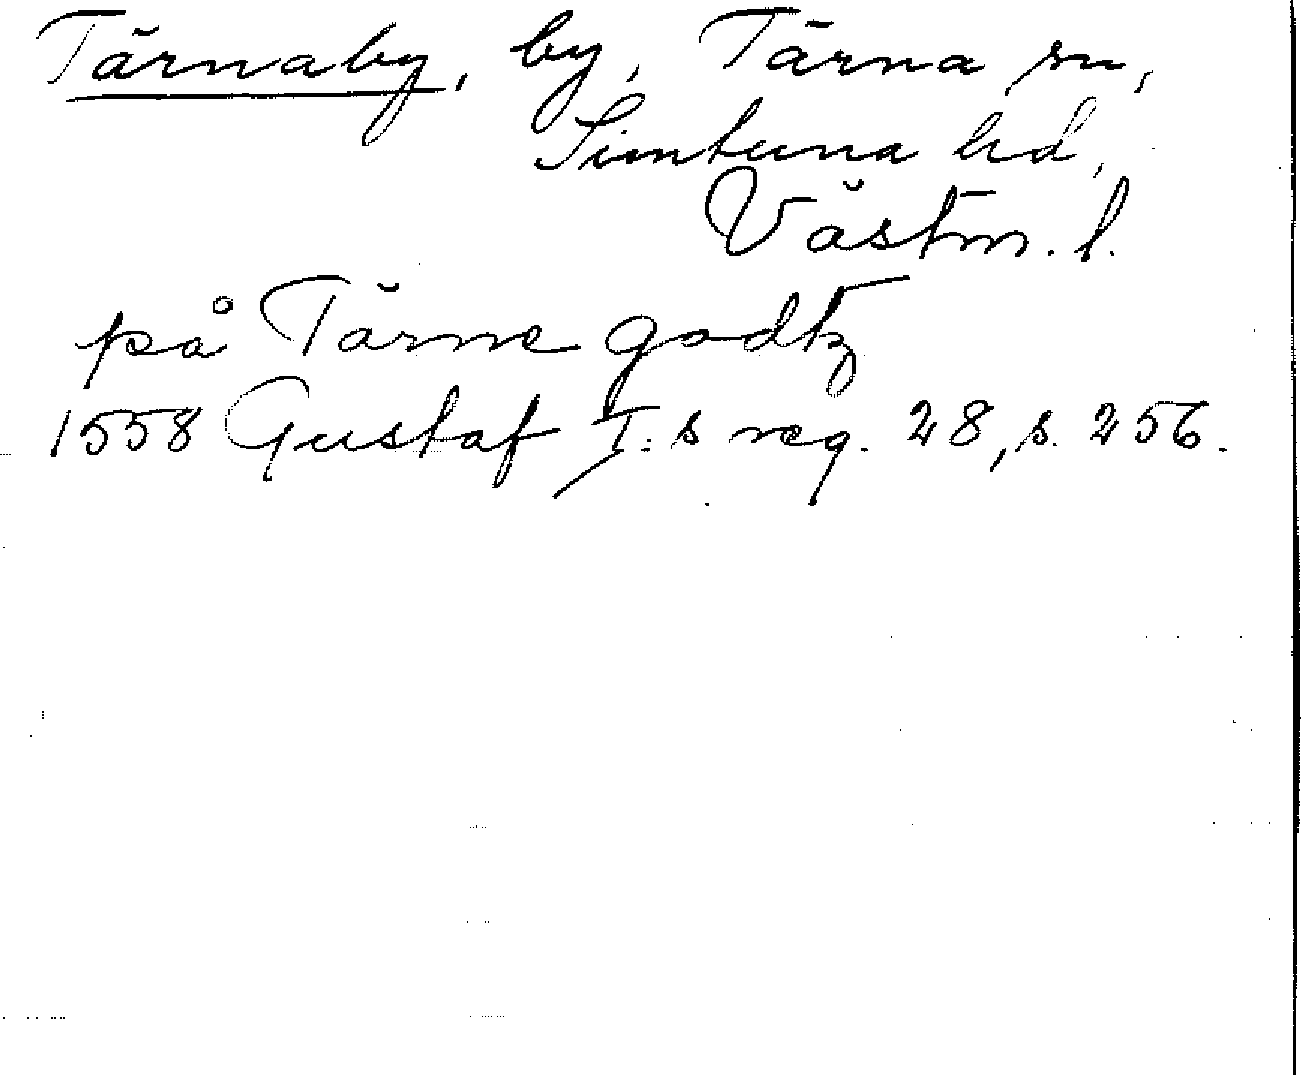 Tärnaby, by, Tärna sn,
Simtuna hd,
Västm. l.
på Tärne godtz
1558 Gustaf I:s reg. 28, s. 256.